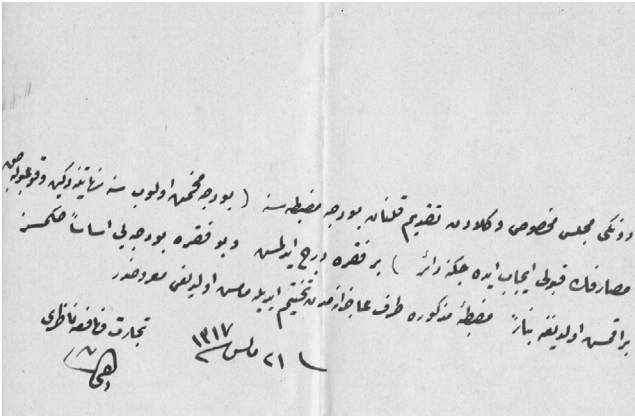 دونكى مجلس مخصوص وكلادن تقديم قلنان بودجه مضبطه سنه ( بودجه مخمن اولوب سنه نهايتنه دكين وقوعبوله جق
مصارفك قبولى ايجاب ايده جكنه دائر ) بر فقره درج ايدلمش وبو فقره بودجه يى اساساً حكمسز
براقمش اولديغنه بناءً مضبطهٔ مذكوره طرف عاجزانه مدن تختيم ايديله مامش اولديغى معروضدر
٢١ مارس ٣١٧
تجارت ونافعه ناظرى
ذهنى